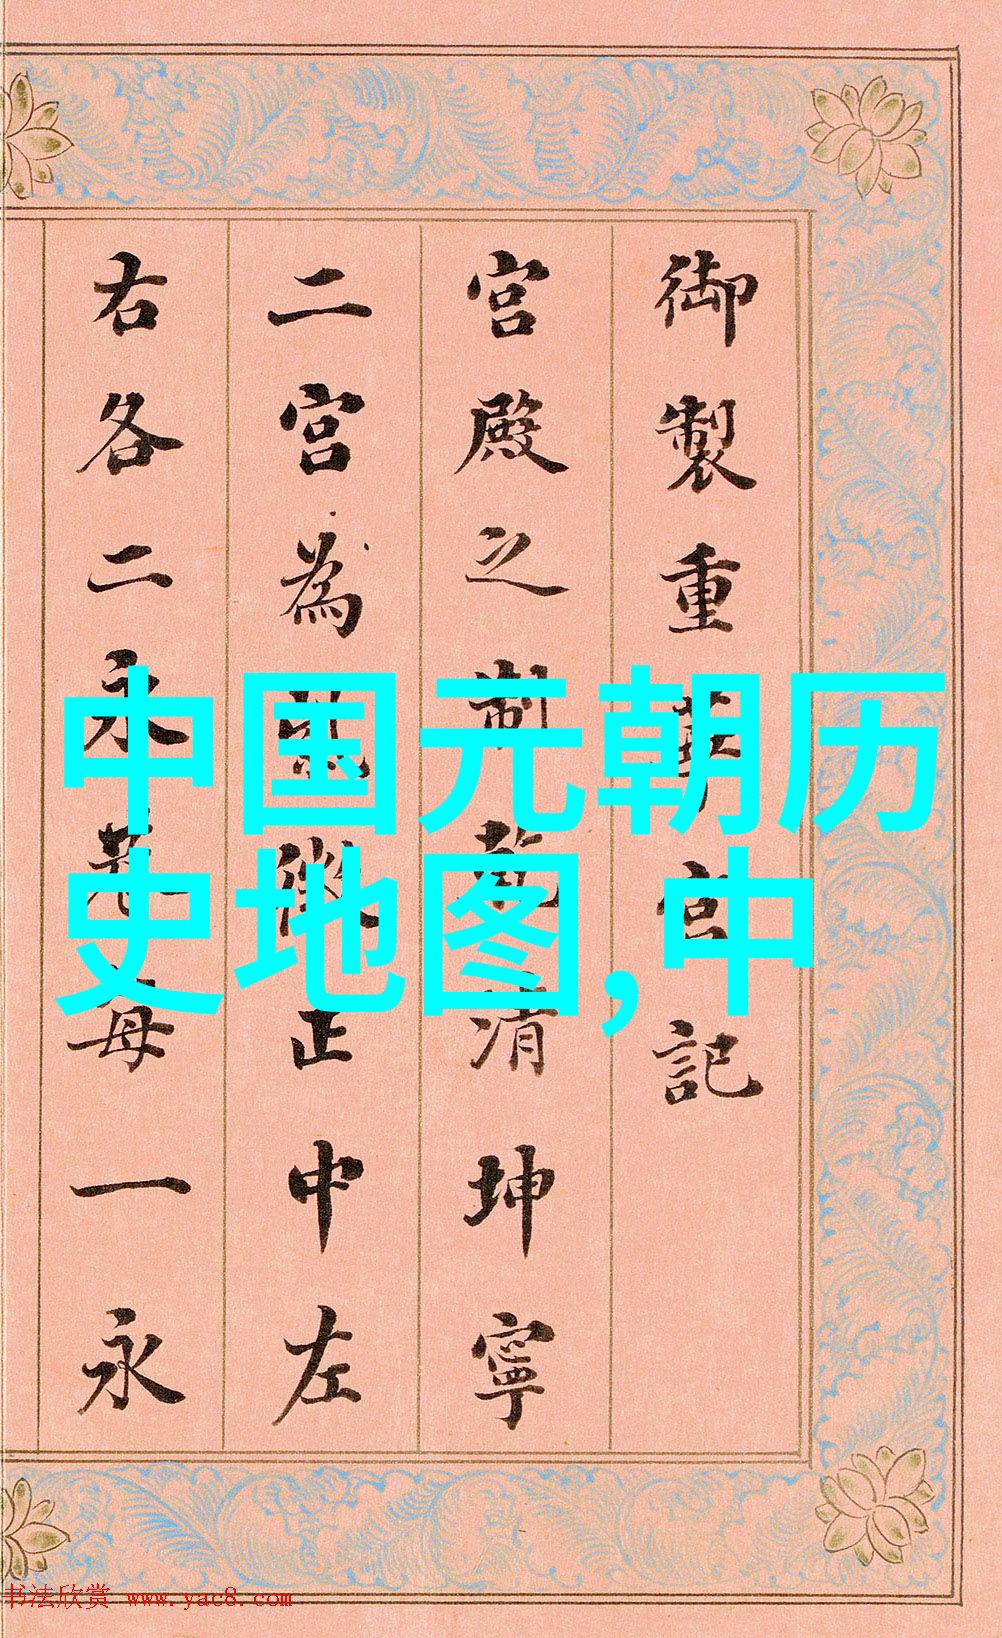 御製重華宮記
宮殿之制乾清坤寧
二宮為紫微正中左
右各二永巷每一永
中国元朝历
史地图,中
书法欣赏 www.yac8.com